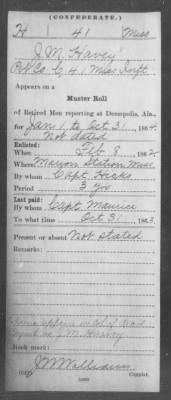 (CONFEDERATE.)
H 41 Miss
J. M. Havey
Pvt Co. C, 41 Miss Inft.
Appears on a
Muster Roll
of Retired Men reporting at Demopolis, Ala.,
for Jan 1 to Oct 31, 1864.
Not dated
Enlisted:
When Feb 8, 1862.
Where Macon Station Miss
By whom Capt. Hicks
Period 3 yrs
Last paid:
By whom Capt. Maurice
To what time Oct 31, 1863.
Present or absent Not Stated
Remarks:
Name appears in col. of
as J. M. Harvey
Book mark:
Copyist.